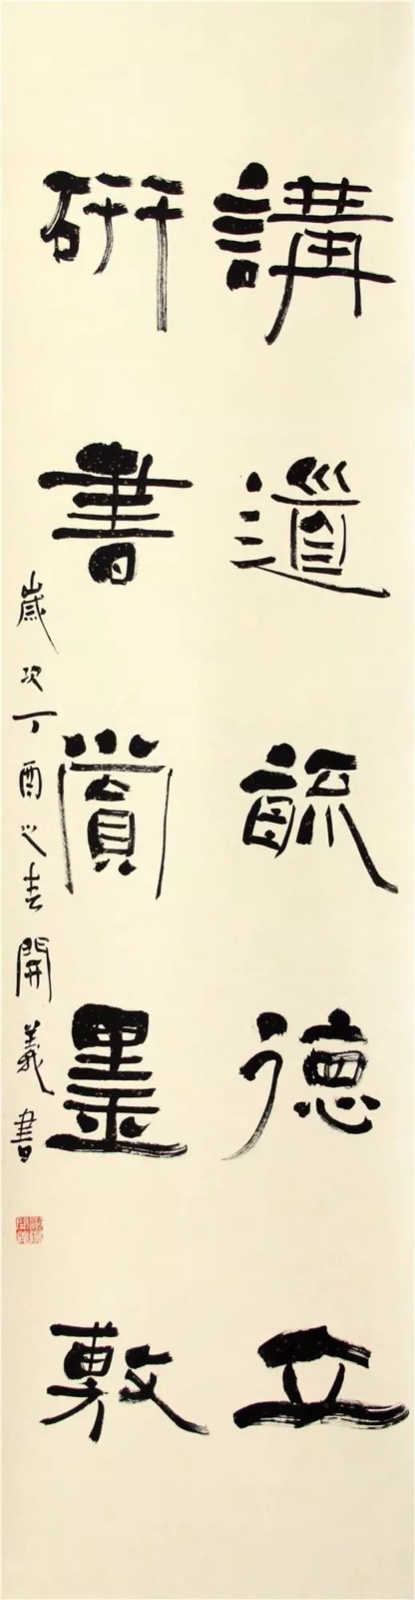 講道毓德立
硏書賞墨敷
歲次丁酉之春開義書